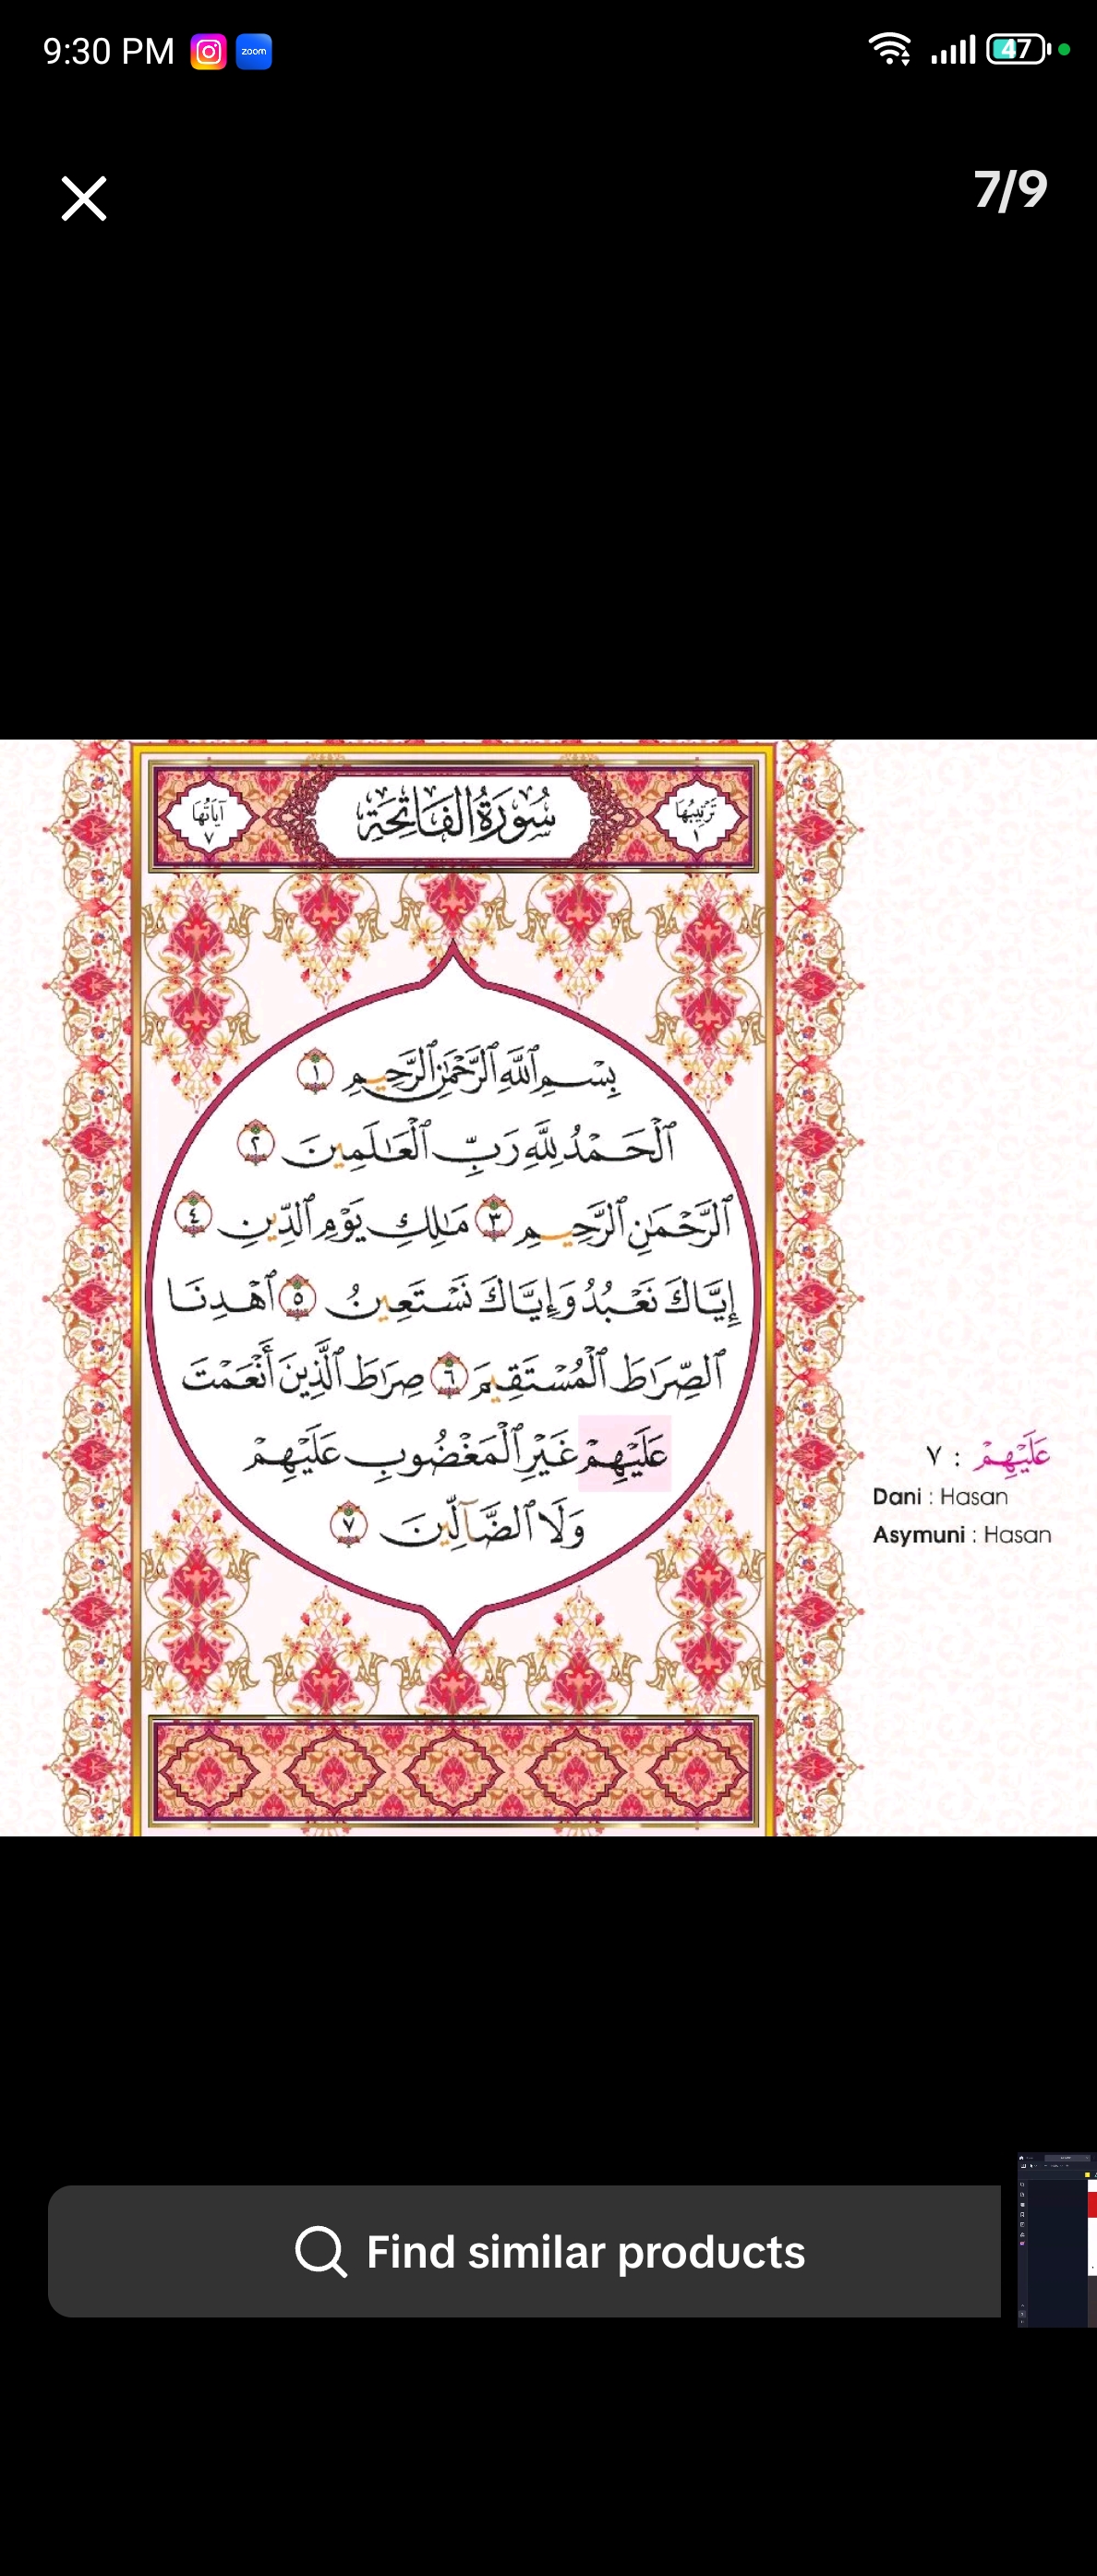 9:30 PM
zoom
47
7/9
تَرْتِيبُهَا
١
سُورَةُ الفَاتِحَةِ
آيَاتُهَا
٧
بِسْمِ ٱللَّهِ ٱلرَّحْمَٰنِ ٱلرَّحِيمِ ١
ٱلْحَمْدُ لِلَّهِ رَبِّ ٱلْعَٰلَمِينَ ٢
ٱلرَّحْمَٰنِ ٱلرَّحِيمِ ٣ مَٰلِكِ يَوْمِ ٱلدِّينِ ٤
إِيَّاكَ نَعْبُدُ وَإِيَّاكَ نَسْتَعِينُ ٥ ٱهْدِنَا
ٱلصِّرَٰطَ ٱلْمُسْتَقِيمَ ٦ صِرَٰطَ ٱلَّذِينَ أَنْعَمْتَ
عَلَيْهِمْ غَيْرِ ٱلْمَغْضُوبِ عَلَيْهِمْ
وَلَا ٱلضَّآلِّينَ ٧
عَلَيْهِمْ : ٧
Dani : Hasan
Asymuni : Hasan
Find similar products